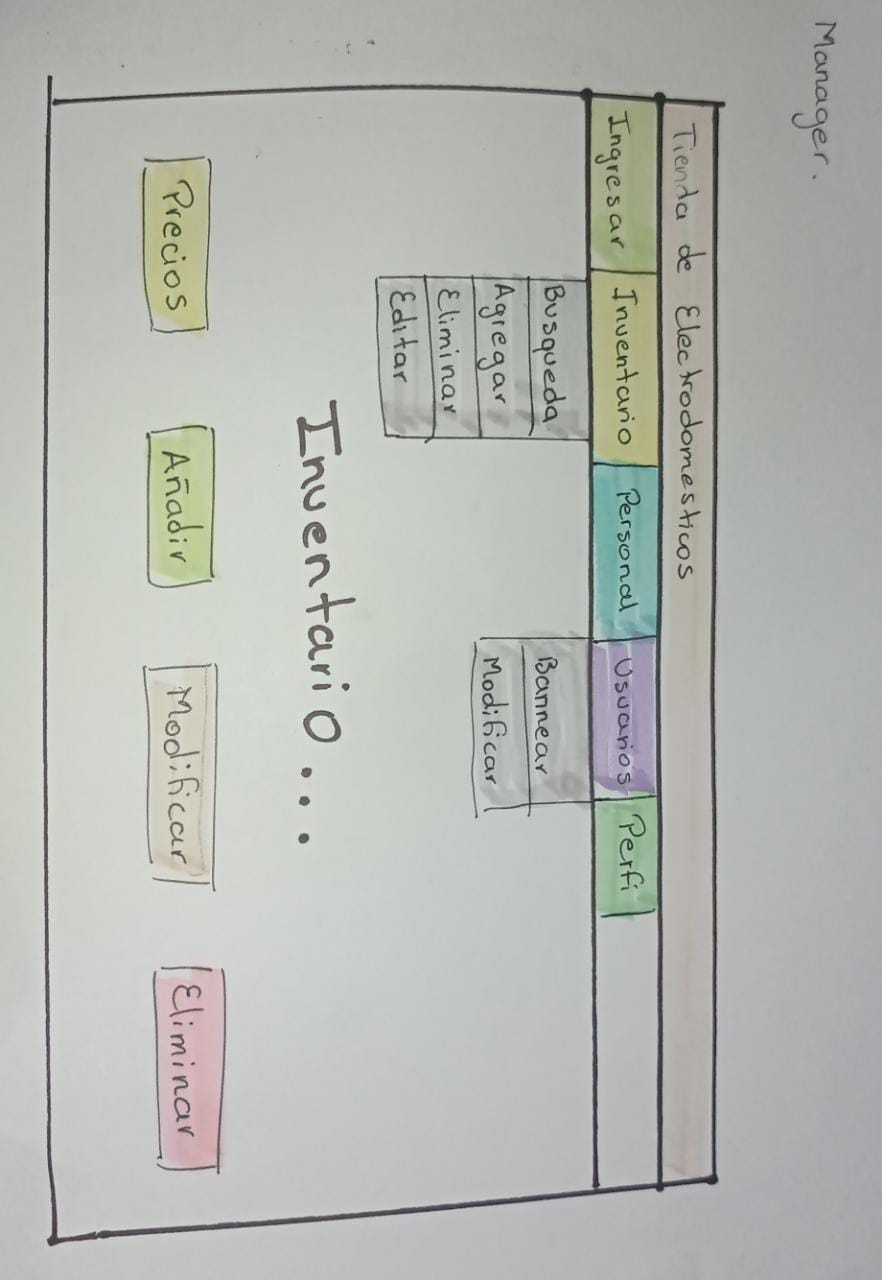 Manager.
Tienda de Electrodomesticos
Ingresar Inventario Personal Usuarios Perfi
Busqueda
Agregar
Eliminar
Editar
Bannear
Modificar
Inventario...
Precios Añadir Modificar Eliminar